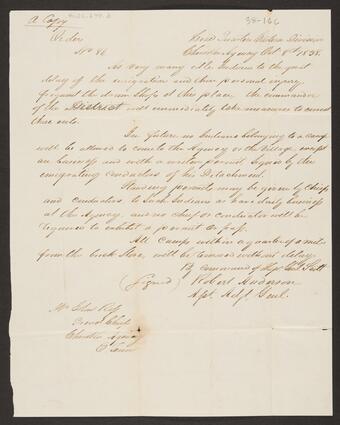 A Copy
4026.679.2
38-166
Order
No 86
Head Quarters Eastern Division
Cherokee Agency Oct 8th 1838.
As very many of the Indians to the great
delay of the emigration and their personal injury
frequent the dram shops at this place the commander
of the District will immediately take measures to correct
this evil.
In future no Indians belonging to a camp
will be allowed to come to the Agency or the Village, except
on business and with a written permit signed by the
emigrating conductor of his Detachment.
Standing permits may be given by Chiefs
and conductors to such Indians as have daily business
at the Agency, and no chief or conductor will be
required to exhibit a permit to pass.
All Camps within a quarter of a mile
from the brick Store, will be removed without delay.
By command of Maj. Genl Scott
(Signed) Robert Anderson
Asst. Adjt. Genl.
Mr Jno Ross
Prinl Chief
Cherokee Agency
E Tenn